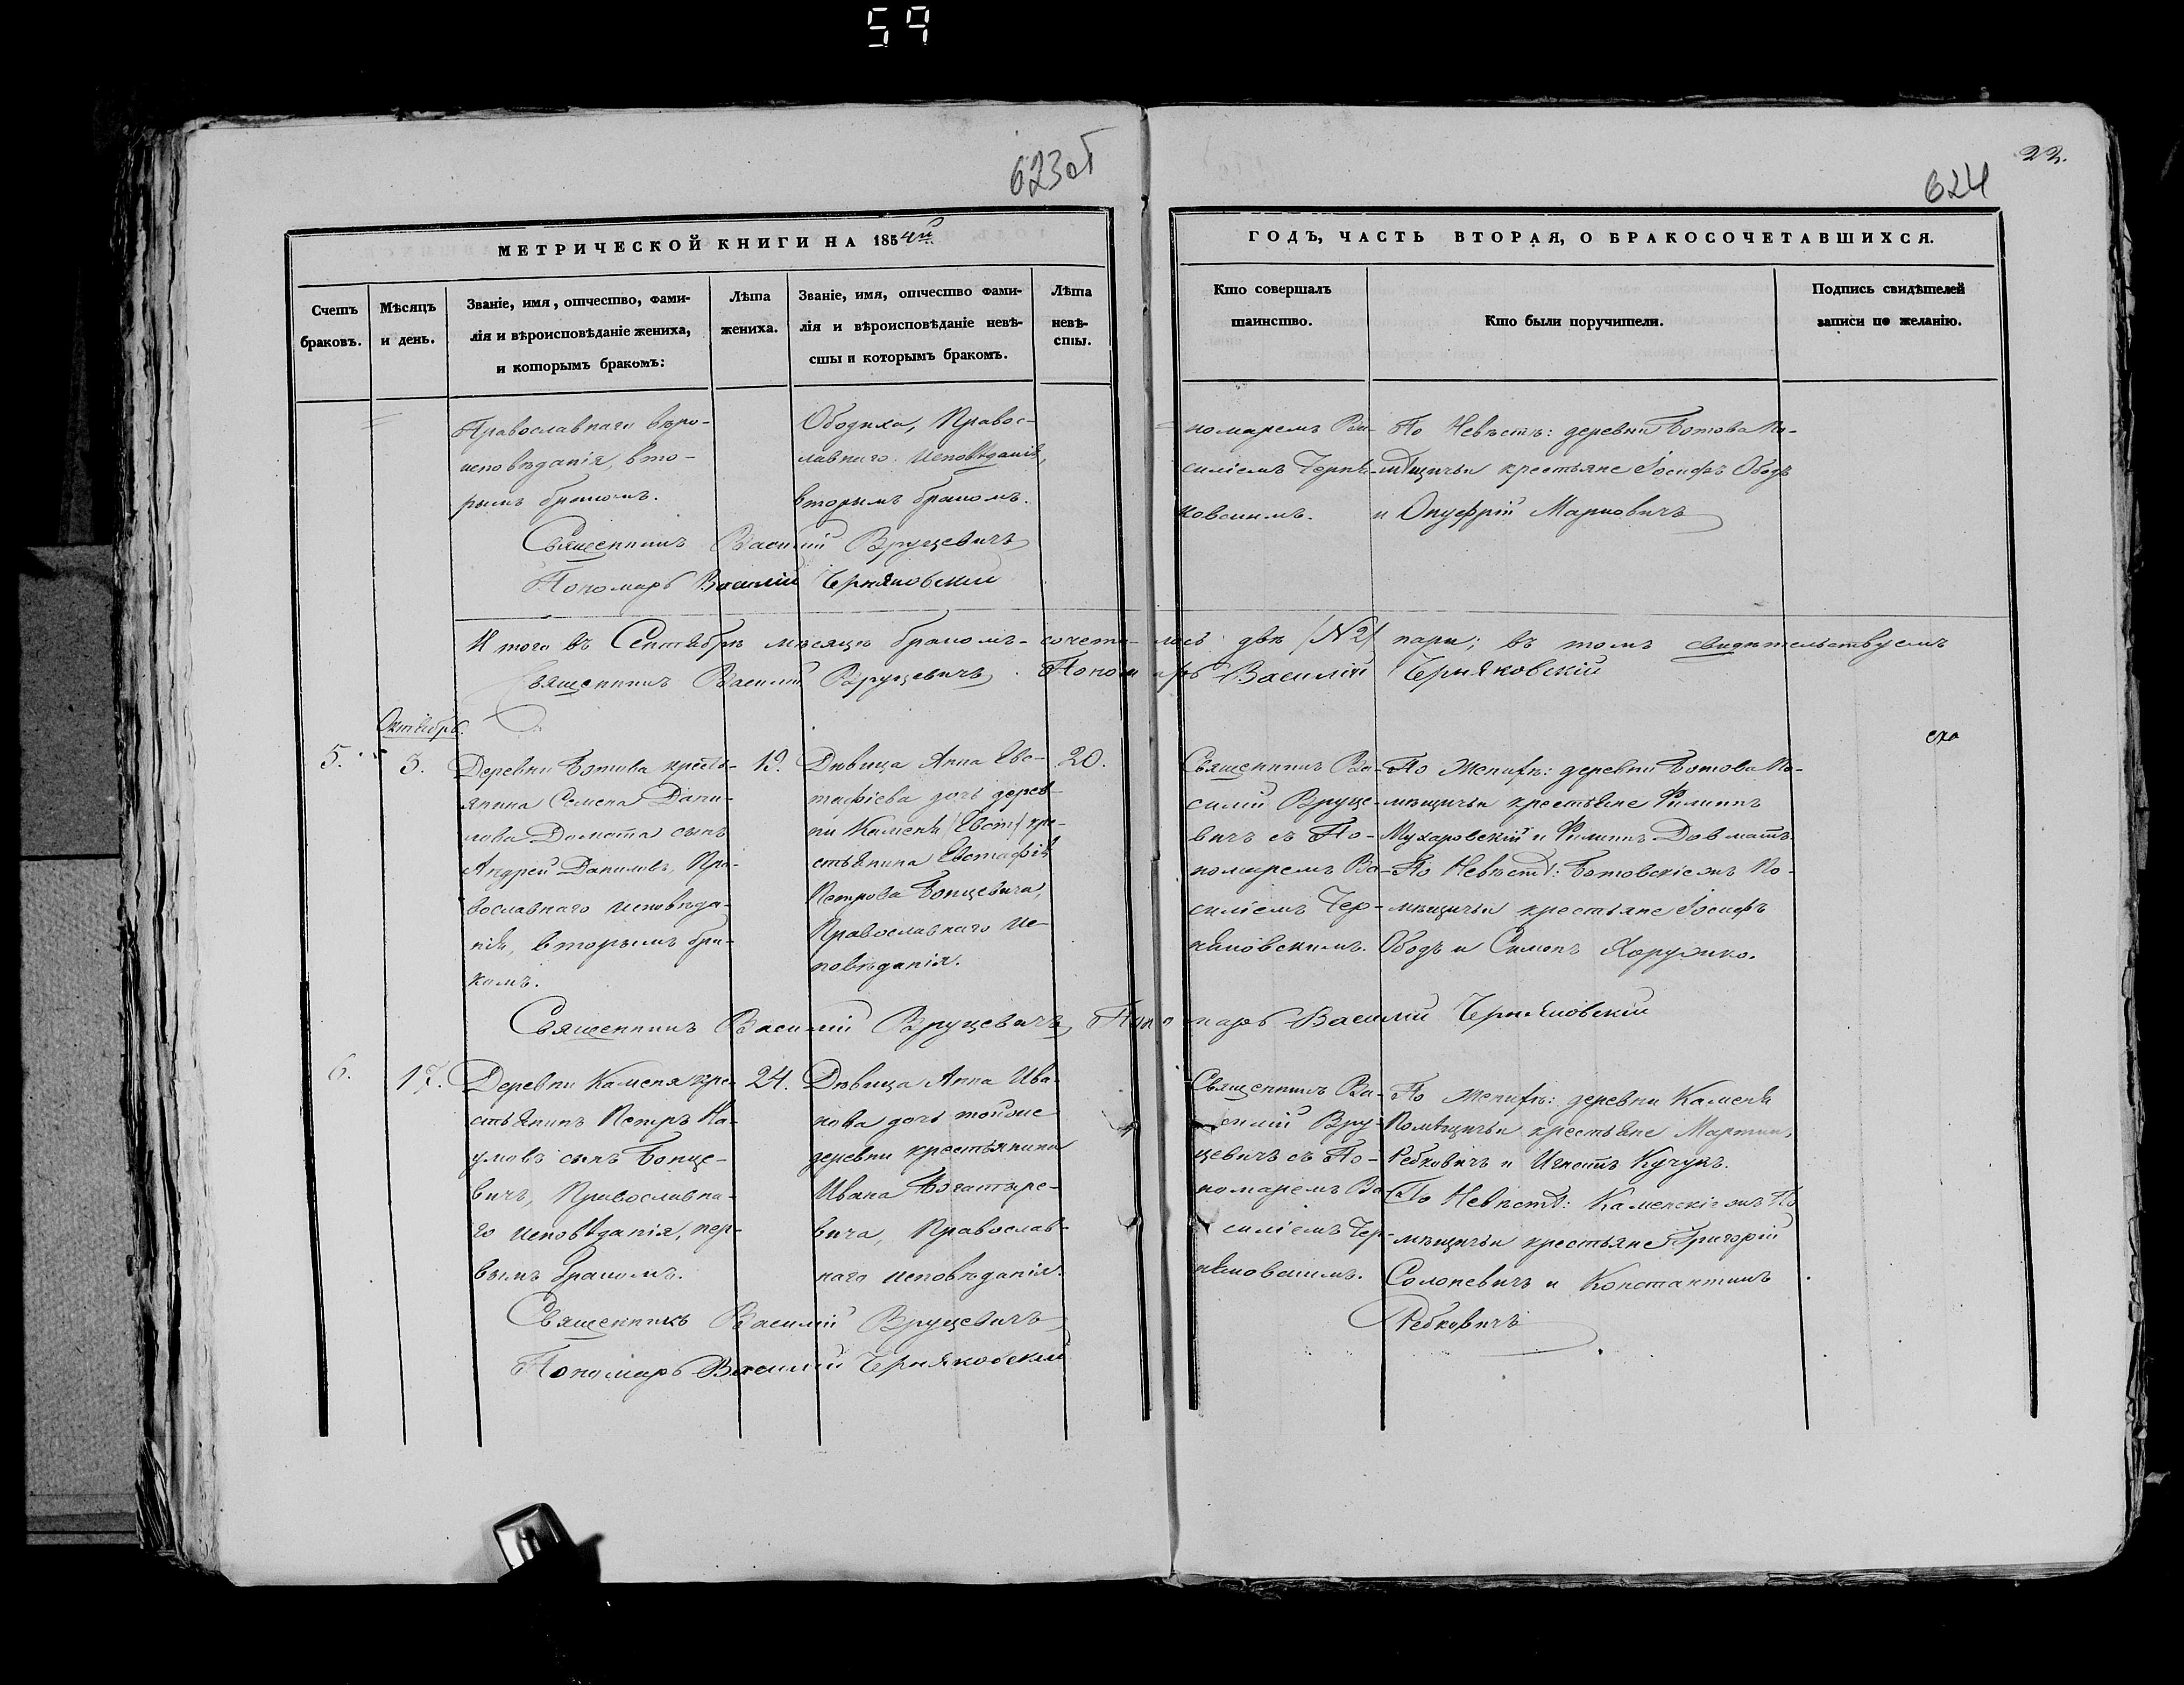 59
623об
624
22.
МЕТРИЧЕСКОЙ КНИГИ НА 1854й
ГОДЪ, ЧАСТЬ ВТОРАЯ, О БРАКОСОЧЕТАВШИХСЯ.
Счетъ
браковъ.
Мѣсяцъ
и день.
Званіе, имя, отчество, фами-
лія и вѣроисповѣданіе жениха,
и которымъ бракомъ:
Лѣта
жениха.
Званіе, имя, отчество фами-
лія и вѣроисповѣданіе невѣ-
сты и которымъ бракомъ.
Лѣта
невѣ-
сты.
Кто совершалъ
таинство.
Кто были поручители.
Подпись свидѣтелей
записи по желанію.
Православнаго вѣро-
исповѣданія, вто-
рымъ бракомъ.
Ободжа, Правос-
лавнаго исповѣданія,
вторымъ бракомъ.
номаремъ Ва-
силіемъ Черня-
ковскимъ.
По Невѣстѣ: деревни Ботова По-
мѣщичьи крестьяне Іосифъ Ободъ
и Онуфрій Марковичъ
Священникъ Василій Вруцевичъ
Пономарь Василій Черняковскій
Итого въ Сентябрѣ мѣсяцѣ бракомъ сочета-лось двѣ /№2/ пары; въ томъ свидѣтельствуемъ
Священникъ Василій Вруцевичъ. Пономарь Василій Черняковскій
Октябрь.
5.
3.
Деревни Ботова кресть-
янина Семена Дани-
лова Домата сынъ
Андрей Даниловъ, Пра-
вославнаго исповѣда-
нія, вторымъ бра-
комъ.
19.
Дѣвица Анна Евс-
тафіева дочь дерев-
ни Каменя /Евст/ кре-
стьянина Евстафія
Петрова Бонцевича,
Православнаго ис-
повѣданія.
20.
Священникъ Ва-
силій Вруце-
вичъ съ По-
номаремъ Ва-
силіемъ Чер-
няковскимъ.
По Женихѣ: деревни Ботова По-
мѣщичьи крестьяне Филипъ
Мухаровскій и Филипъ Довматъ.
По Невѣстѣ: Ботовскіежъ По-
мѣщичьи крестьяне Іосифъ
Ободъ и Симонъ Харужико.
Священникъ Василій Вруцевичъ, Пономарь Василій Черняковскій
6.
17.
Деревни Каменя кре-
стьянинъ Петръ На-
умовъ сынъ Бонце-
вичъ, Православна-
го исповѣданія, пер-
вымъ бракомъ.
24.
Дѣвица Анна Ива-
нова дочь тойже
деревни крестьянина
Ивана Богатыре-
вича, Православ-
наго исповѣданія.
Священникъ Ва-
силій Вру-
цевичъ съ По-
номаремъ Ва-
силіемъ Чер-
няковскимъ.
По Женихѣ: деревни Каменя
Помѣщичьи крестьяне Мартинъ
Ребковичъ и Игнатъ Кучукъ.
По Невѣстѣ: Каменскіежъ По
мѣщичьи крестьяне Григорій
Солоневичъ и Константинъ
Ребковичъ
Священникъ Василій Вруцевичъ
Пономарь Василій Черняковскій